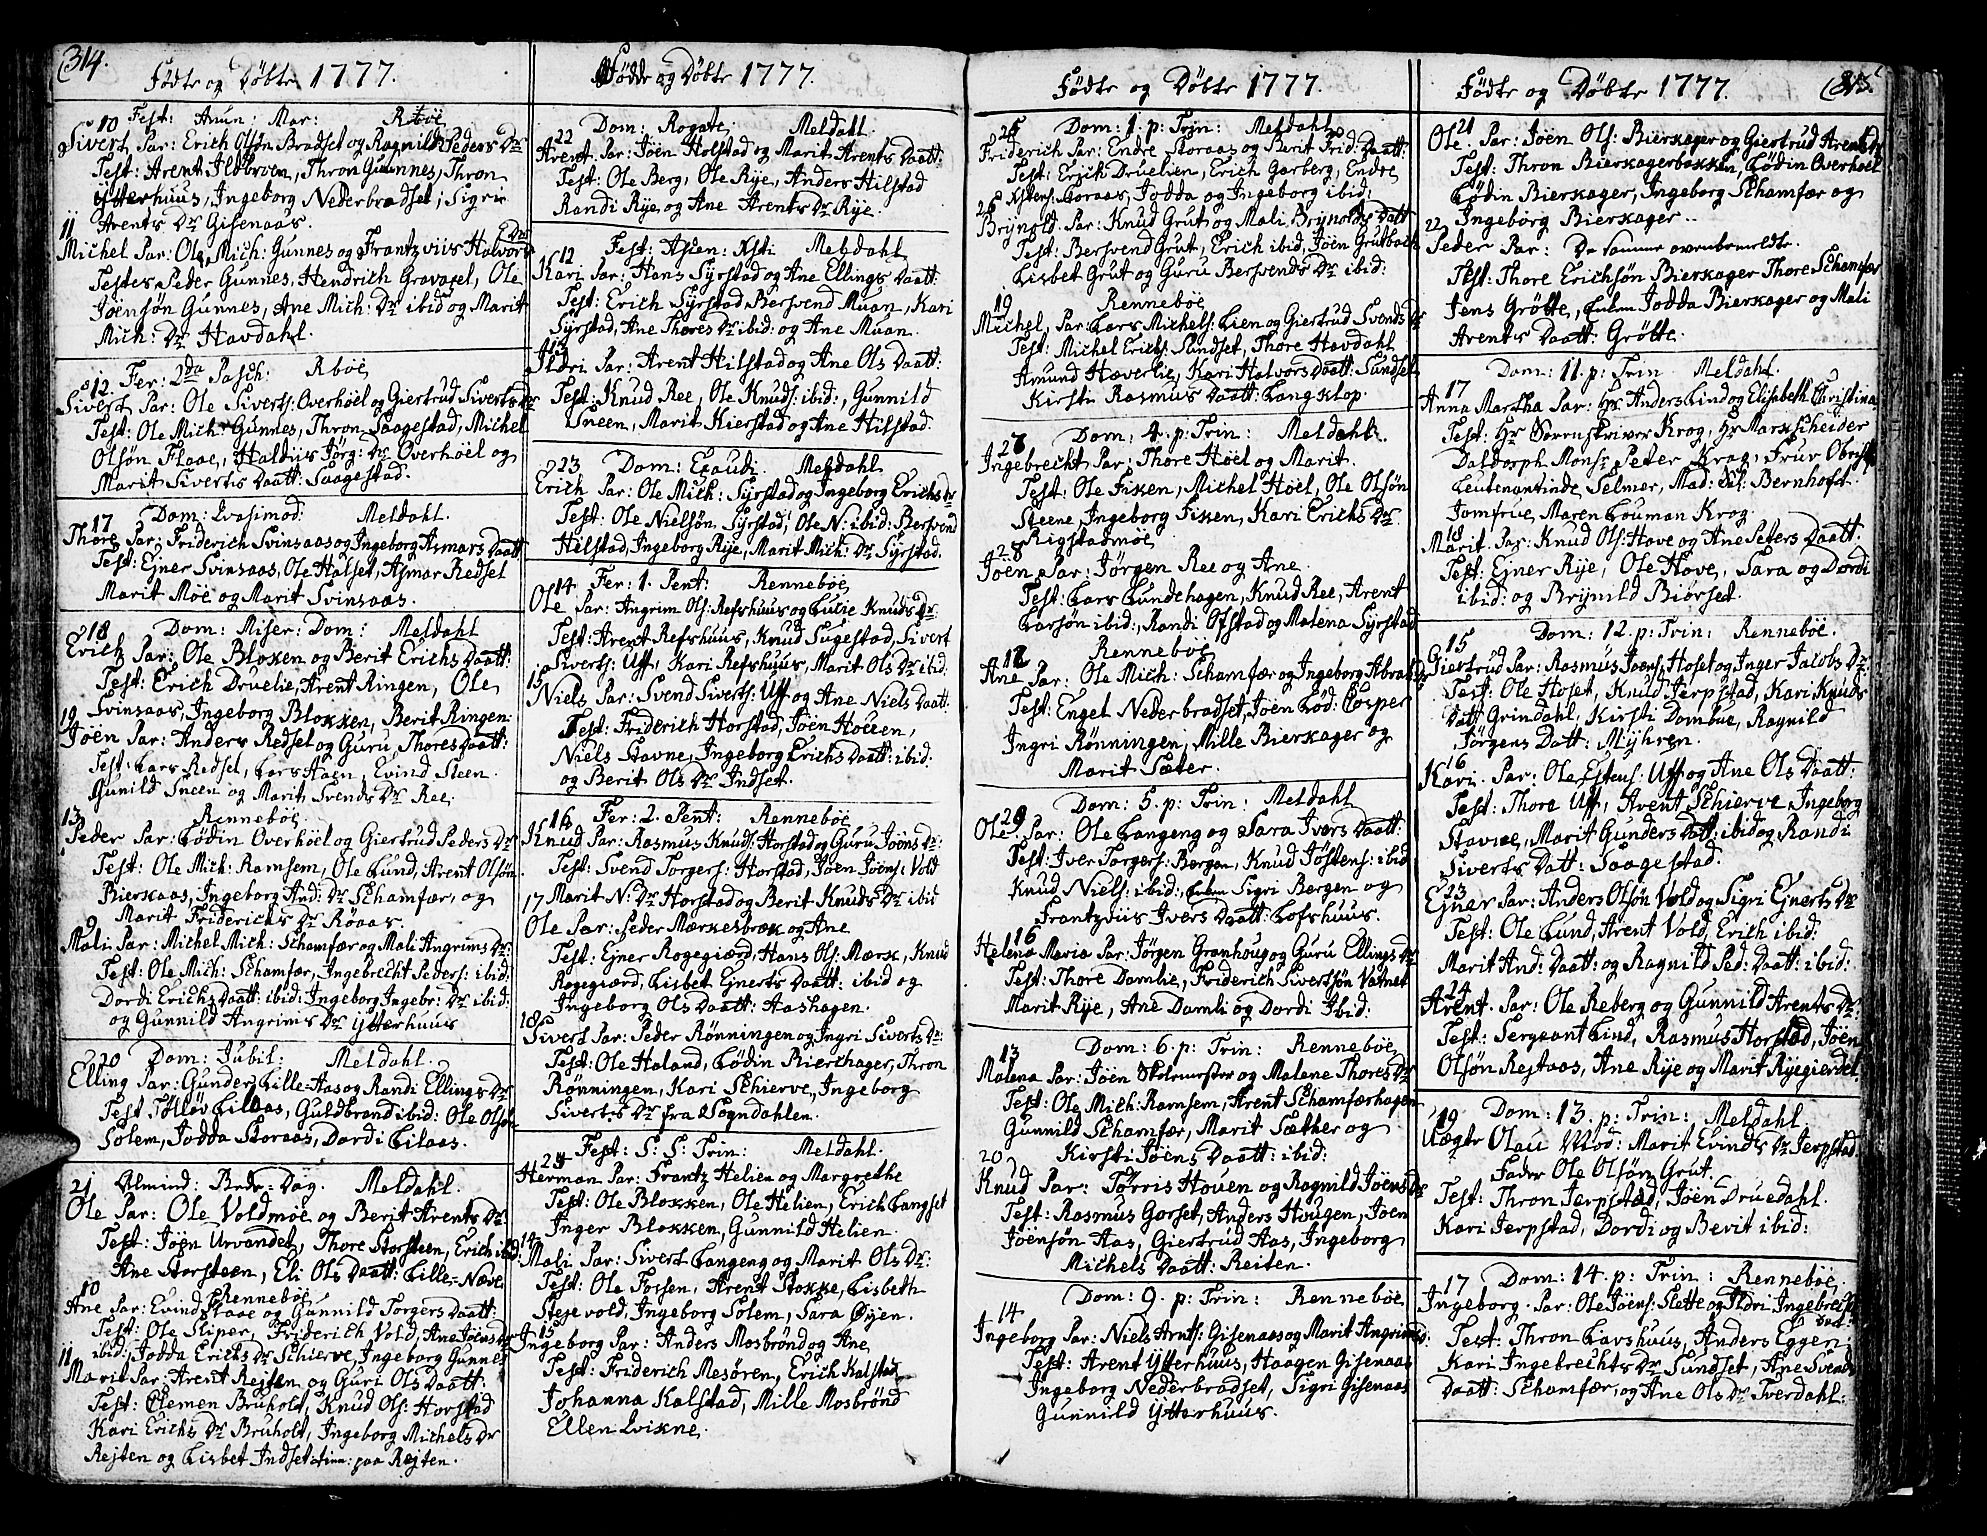 314.
Fødte og Døbte 1777.
Fest: Anun: Mar: Rböe
10
Sivert Par: Erich Olsön Bradset og Ragnild Peders Dr
Test: Arent Ildbroen, Thron Gunnes, Thron
Ytterhuus, Ingeborg Nederbradset, Sigri
Arents Dr Gisenaas.
11
Michel Par: Ole Mich: Gunnes og Frantzviis Halvors Dr
Testes Peder Gunnes, Hendrich Gravasel, Ole
Joensön Gunnes, Ane Mich: Dr ibid og Marit
Mich: Dr Havdahl.
12 Fer: 2da Pasch: Rböe
Sivert Par: Ole Siverts: Overhöel og Giertrud Siverts Dr
Test: Ole Mich: Gunnes, Thron Saagestad, Michel
Olsön Flaae, Haldiis Jörg: Dr Overhöel og
Marit Siverts Daatt: Saagestad.
17 Dom: Qvasimod: Meldahl.
Thore Par: Friderich Svinsaas og Ingeborg Asmars Daatt
Test: Ejner Svinsaas, Ole Halset, Asmar Redset
Marit Möe og Marit Svinsaas.
18 Dom: Miser: Dom: Meldahl
Erich Par: Ole Bloxen og Berit Erichs Daatt:
Test: Erich Druelie, Arent Ringen, Ole
Svinsaas, Ingeborg Bloxken, Berit Ringen
19
Joen Par: Anders Redset og Guru Thores Daatt:
Test: Lars Redset, Lars Haen, Evind Steen
Gunild Sneen og Marit Svends Dr Ree.
13 Renneböe
Peder Par: Lödin Overhöel og Giertrud Peders Dr
Test: Ole Mich: Ramsem, Ole Lund, Arent Olsön
Bierkaas, Ingeborg And: Dr Schamfær, og
Marit Friderichs Dr Röaas
9
Mali Par: Michel Mich: Schamfær og Mali Angrims Dr
Test: Ole Mich: Schamfær, Ingebrecht Peders: ibid:
Dordi Erichs Daatt: ibid: Ingeborg Ingebr: Dr ibid:
og Gunnild Angrims Dr Ytterhuus
20 Dom: Jubil: Meldahl.
Elling Par: Gunder Lille-Haas og Randi Ellings Dr
Test Tölløv Lilaas, Guldbrand ibid: Ole Olsön
Solem, Jodda Storaas, Dordi Lilaas.
21 Almind: Beds-Dag. Meldahl.
Ole Par: Ole Voldmöe og Berit Arents Dr
Test: Joen Urvandet, Thore Storsteen, Erich ibid:
Ane Storsteen, Eli Ols Daatt: Lille-Næve
10 Renneböe
Ane Par: Evind Flaae og Gunnild Torgers Daatt:
Test: Ole Skiper, Friderich Vold, Ane Joens Dr
ibid: Jodda Erichs Dr Schierve, Ingeborg Gunnes
11
Marit Par: Arent Rejten og Guri Ols Daatt:
Test: Clemen Bruholt, Knud Ols: Horstad
Kari Erichs Dr Bruholt, Ingeborg Michels Dr
Rejten og Lisbet Indset paa Rejten.
Födde og Döbte 1777.
22 Dom: Rogate. Meldahl.
Arent Par: Joen Holstad og Marit Arents Daatt:
Test: Ole Berg, Ole Rye, Anders Hilstad
Randi Rye, og Ane Arents Dr Rye.
Fest: Ascen: Xsti Meldahl
12
Kari Par: Hans Syrstad og Ane Ellings Daatt:
Test: Erich Syrstad Bersvend Muan, Kari
Syrstad, Ane Thores Dr ibid: og Ane Muan.
13
Ildri Par: Arent Hilstad og Ane Ols Daatt:
Test: Knud Ree, Ole Knuds: ibid:, Gunnild
Sneen, Marit Kierstad og Ane Hilstad.
23 Dom: Exaudi. Meldahl
Erich Par: Ole Mich: Syrstad og Ingeborg Erichs Dr
Test: Ole Nielsön Syrstad, Ole N: ibid: Bersvend
Hilstad, Ingeborg Rye, Marit Mich: Dr Syrstad.
14 Fer: 1. Pent: Renneböe
Ole Par: Angrim Ols: Refshuus og Lucie Knuds Dr
Test: Arent Refshuus, Knud Sugestad, Sivert
Siverts: Uff, Kari Refshuus, Marit Ols Dr ibid.
15
Niels Par: Svend Siverts: Uff og Ane Niels Daatt:
Test: Friderich Horstad, Joen Houen,
Niels Stavne, Ingeborg Erichs Daatt: ibid:
og Berit Ols Dr Indset.
16 Fer: 2. Pent: Renneböe
Knud Par: Rasmus Knuds: Horstad og Guru Joens Dr:
Test: Svend Torgers: Horstad, Joen Joens: Vold
Marit N: Dr Horstad og Berit Knuds Dr ibid
17
Ole Par: Peder Mærkesbrok og Ane
Test: Ejner Rogegiærd, Hans Ols: Mærk, Knud
Rogegiærd, Lisbet Ejnerts Daatt: ibid og
Ingeborg Ols Daatt: Aashagen.
18
Sivert Par: Peder Rönningen og Ingri Siverts Dr:
Test: Ole Haland, Lödin Bierchager, Thron
Rönningen, Kari Schierve, Ingeborg
Siverts Dr fra Sogndahlen.
Fest: S: S: Trin: Meldahl.
24
Herman Par: Frantz Helien og Margrethe
Test: Ole Bloxken, Ole Helien, Erich Langset
Inger Bloxken, Gunnild Helien.
14
Mali Par: Sivert Langeng og Marit Ols Dr:
Test: Ole Forsen, Arent Stokke, Lisbeth
Stejevold, Ingeborg Solem, Sara Öyen.
15
Ingeborg Par: Anders Mosbrönd og Ane
Test: Friderich Mesören, Erich Kalstad
Johanna Kalstad, Mille Mosbrönd
Ellen Qvikne.
Födte og Döbte 1777.
25 Dom: 1. p: Trin: Meldahl
Friderich Par: Endre Storaas og Berit Frid: Daatt:
Test: Erich Druelien, Erich Garberg, Endre
Storaas, Jodda og Ingeborg ibid.
26
Brynold Par: Knud Grut og Mali Brynolds Datt
Test: Bersvend Grut, Erich ibid, Joen Grutbach
Lisbet Grut og Guru Bersvends Dr ibid:
19 Renneböe
Michel, Par: Lars Michels: Lien og Giertrud Svends Dr
Test: Michel Erichs: Sundset, Thore Havdahl
Amund Hæverlie, Kari Halvors Daatt: Sundset
Kirsti Rasmus Daatt: Langklop.
27 Dom: 4. p: Trin: Meldahl.
Ingebrecht Par: Thore Höel og Marit.
Test: Ole Fixen, Michel Höel, Ole Olsön
Steene, Ingeborg Fixen, Kari Erichs Dr
Rigstadmöe
28
Joen Par: Jörgen Ree og Ane
Test: Lars Lundehagen, Knud Ree, Arent
Larsön ibid:, Randi Ofstad og Malena Syrstad
12 Renneböe
Ane Par: Ole Mich: Schamfær og Ingeborg
Test: Engel Nederbradset, Joen Löd: Casper
Ingri Rönningen, Mille Bierkager og
Marit Sæter.
29 Dom: 5. p: Trin: Meldahl
Ole Par: Ole Langeng og Sara Ivers Daatt:
Test: Iver Torgers: Bergen, Knud Jöstens: ibid
Knud Niels: ibid: Sigri Bergen og
Frantzviis Ivers Daatt: Lofshuus.
16
Helena Maria Par: Jörgen Granhoug og Guru Ellings Dr
Test: Thore Damlie, Friderich Sivertsön Vatnet
Marit Rye, Ane Damli og Dordi Ibid:
13 Dom: 6. p: Trin: Renneböe
Malena Par: Joen Skolemester og Malene Thores Dr
Test: Ole Mich: Ramsem, Arent Schamfærhagen
Gunnild Schamfær, Marit Sæther og
Kirsti Joens Daatt: ibid:
20
Knud Par: Torris Houen og Ragnild Joens Dr
Test: Rasmus Gorset, Anders Hougen, Joen
Joensön Aas, Giertrud Aas, Ingeborg
Michels Daatt: Reiten.
14 Dom: 9. p: Trin: Renneböe
Ingeborg Par: Niels Arnts: Gisenaas og Marit Angrims Dr
Test: Arent Ytterhuus, Haagen Gisenaas
Ingeborg Nederbradset, Sigri Gisenaas
Gunnild Ytterhuus.
Födte og Döbte 1777.
315.
21
Ole Par: Joen Ols: Bierkager og Giertrud Arents Dr
Test: Thron Bierkagerbakken, Lödin Overhöel
Lödin Bierkager, Ingeborg Schamfær og
Ingeborg Bierkager.
22
Peder Par: De samme ovenbemeldte.
Test: Thore Erichsön Bierkager Thore Schamfær
Jens Grötte, Jodda Bierkager og Mali
Arents Daatt: Grötte.
Dom: 11. p: Trin Meldahl.
17
Anna Martha Par: Hr Anders Lind og Elisabeth Christina
Test: Hr Sorenskriver Krog, Hr Marxscheider
Daldorph Monsr Peter Krog, Frue Obrist
Leutenantinde Selmer, Mad: Bernhoft.
Jomfrue Maren Louman Krog.
18
Marit Par: Knud Ols: Hove og Ane Peters Daatt:
Test: Ejner Rye, Ole Hove, Sara og Dordi
ibid: og Brynild Biörset.
15 Dom: 12. p: Trin: Renneböe.
Giertrud Par: Rasmus Joens: Hoset og Inger Jacobs Dr:
Test: Ole Hoset, Knud Jerpstad, Kari Knuds
Datt Grindahl, Kirsti Dombue, Ragnild
Jörgens Datt: Myhren.
16
Kari Par: Ole Estens: Uff og Ane Ols Daatt:
Test: Thore Uff, Arent Schierve Ingeborg
Stavne, Marit Gunders Datt: ibid og Randi
Siverts Datt: Saagestad.
23
Ejner Par: Anders Olsön Vold og Sigri Ejnerts Dr
Test: Ole Lund, Arent Vold, Erich ibid:
Marit And: Daatt: og Ragnild Ped: Daatt: ibid:
24
Arent Par: Ole Reberg og Gunnild Arents Dr
Test: Sergeant Lind, Rasmus Horstad, Joen
Olsön Rejtaas, Ane Rye og Marit Ryegierdet.
19 Dom: 13. p: Trin: Meldahl
Uægte Olau Mod: Marit Evinds Dr Jerpstad
Fader Ole Olsön Grut.
Test: Thron Jerpstad, Joen Druedahl.
Kari Jerpstad, Dordi og Berit ibid:
17 Dom: 14. p: Trin: Renneböe
Ingeborg Par: Ole Joens: Slette og Ildri Ingebrechts Dat:
Test: Thron Lavshuus, Anders Eggen
Kari Ingebrechts Dr Sundset, Ane Svends
Daatt: Schamfær, og Ane Ols Dr Sverdahl: